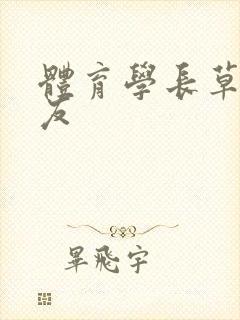 體育學長草
友
畢飛宇